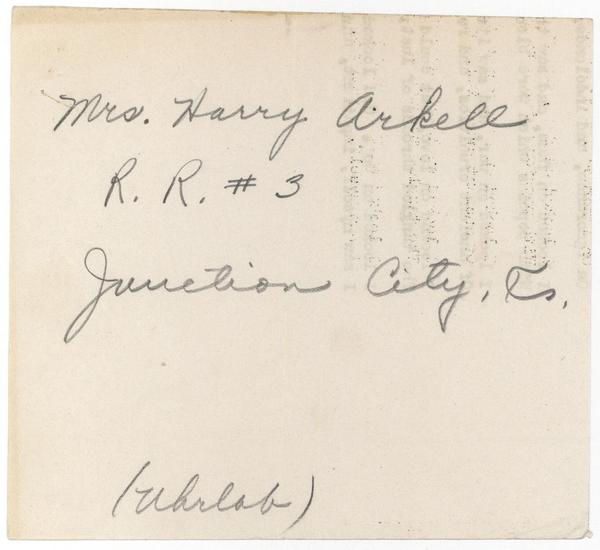 Mrs. Harry Arkell
R. R. # 3
Junction City, Ks.
(Uhrlab)